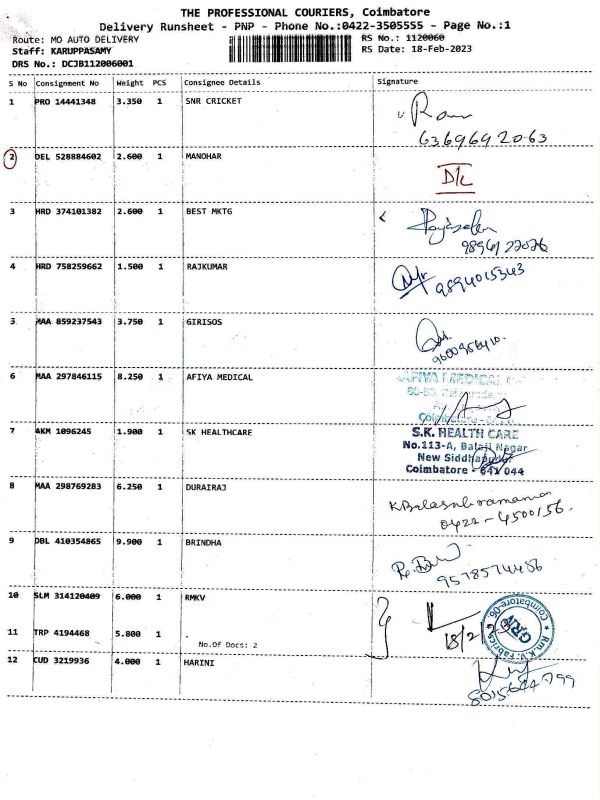 THE PROFESSIONAL COURIERS, Coimbatore
Delivery Runsheet - PNP - Phone No.:0422-3505555 - Page No.:1
Route: MO AUTO DELIVERY
RS No.: 1120060
Staff: KARUPPASAMY
RS Date: 18-Feb-2023
DRS No.: DCJB112006001
S No Consignment No Weight PCS Consignee Details Signature
1 PRO 14441348 3.350 1 SNR CRICKET
2 DEL 528884602 2.600 1 MANOHAR
D/L
3 HRD 374101382 2.600 1 BEST MKTG
4 HRD 758259662 1.500 1 RAJKUMAR
9894015343
5 MAA 859237543 3.750 1 GIRISOS
6 MAA 297846115 8.250 1 AFIYA MEDICAL
AFIYA MEDICAL
7 AKM 1096245 1.900 1 SK HEALTHCARE
S.K. HEALTH CARE
No.113-A, Balaji Nagar
New Siddhapudur
Coimbatore - 641 044
8 MAA 298769283 6.250 1 DURAIRAJ
K Balasubramanian
0422-4500156.
9 DBL 410354865 9.900 1 BRINDHA
9578574486
10 SLM 314120409 6.000 1 RMKV
18/2/23
Coimbatore-06
GRN
Rm.K.V. Fabrics
11 TRP 4194468 5.800 1 .
No.Of Docs: 2
12 CUD 3219936 4.000 1 HARINI